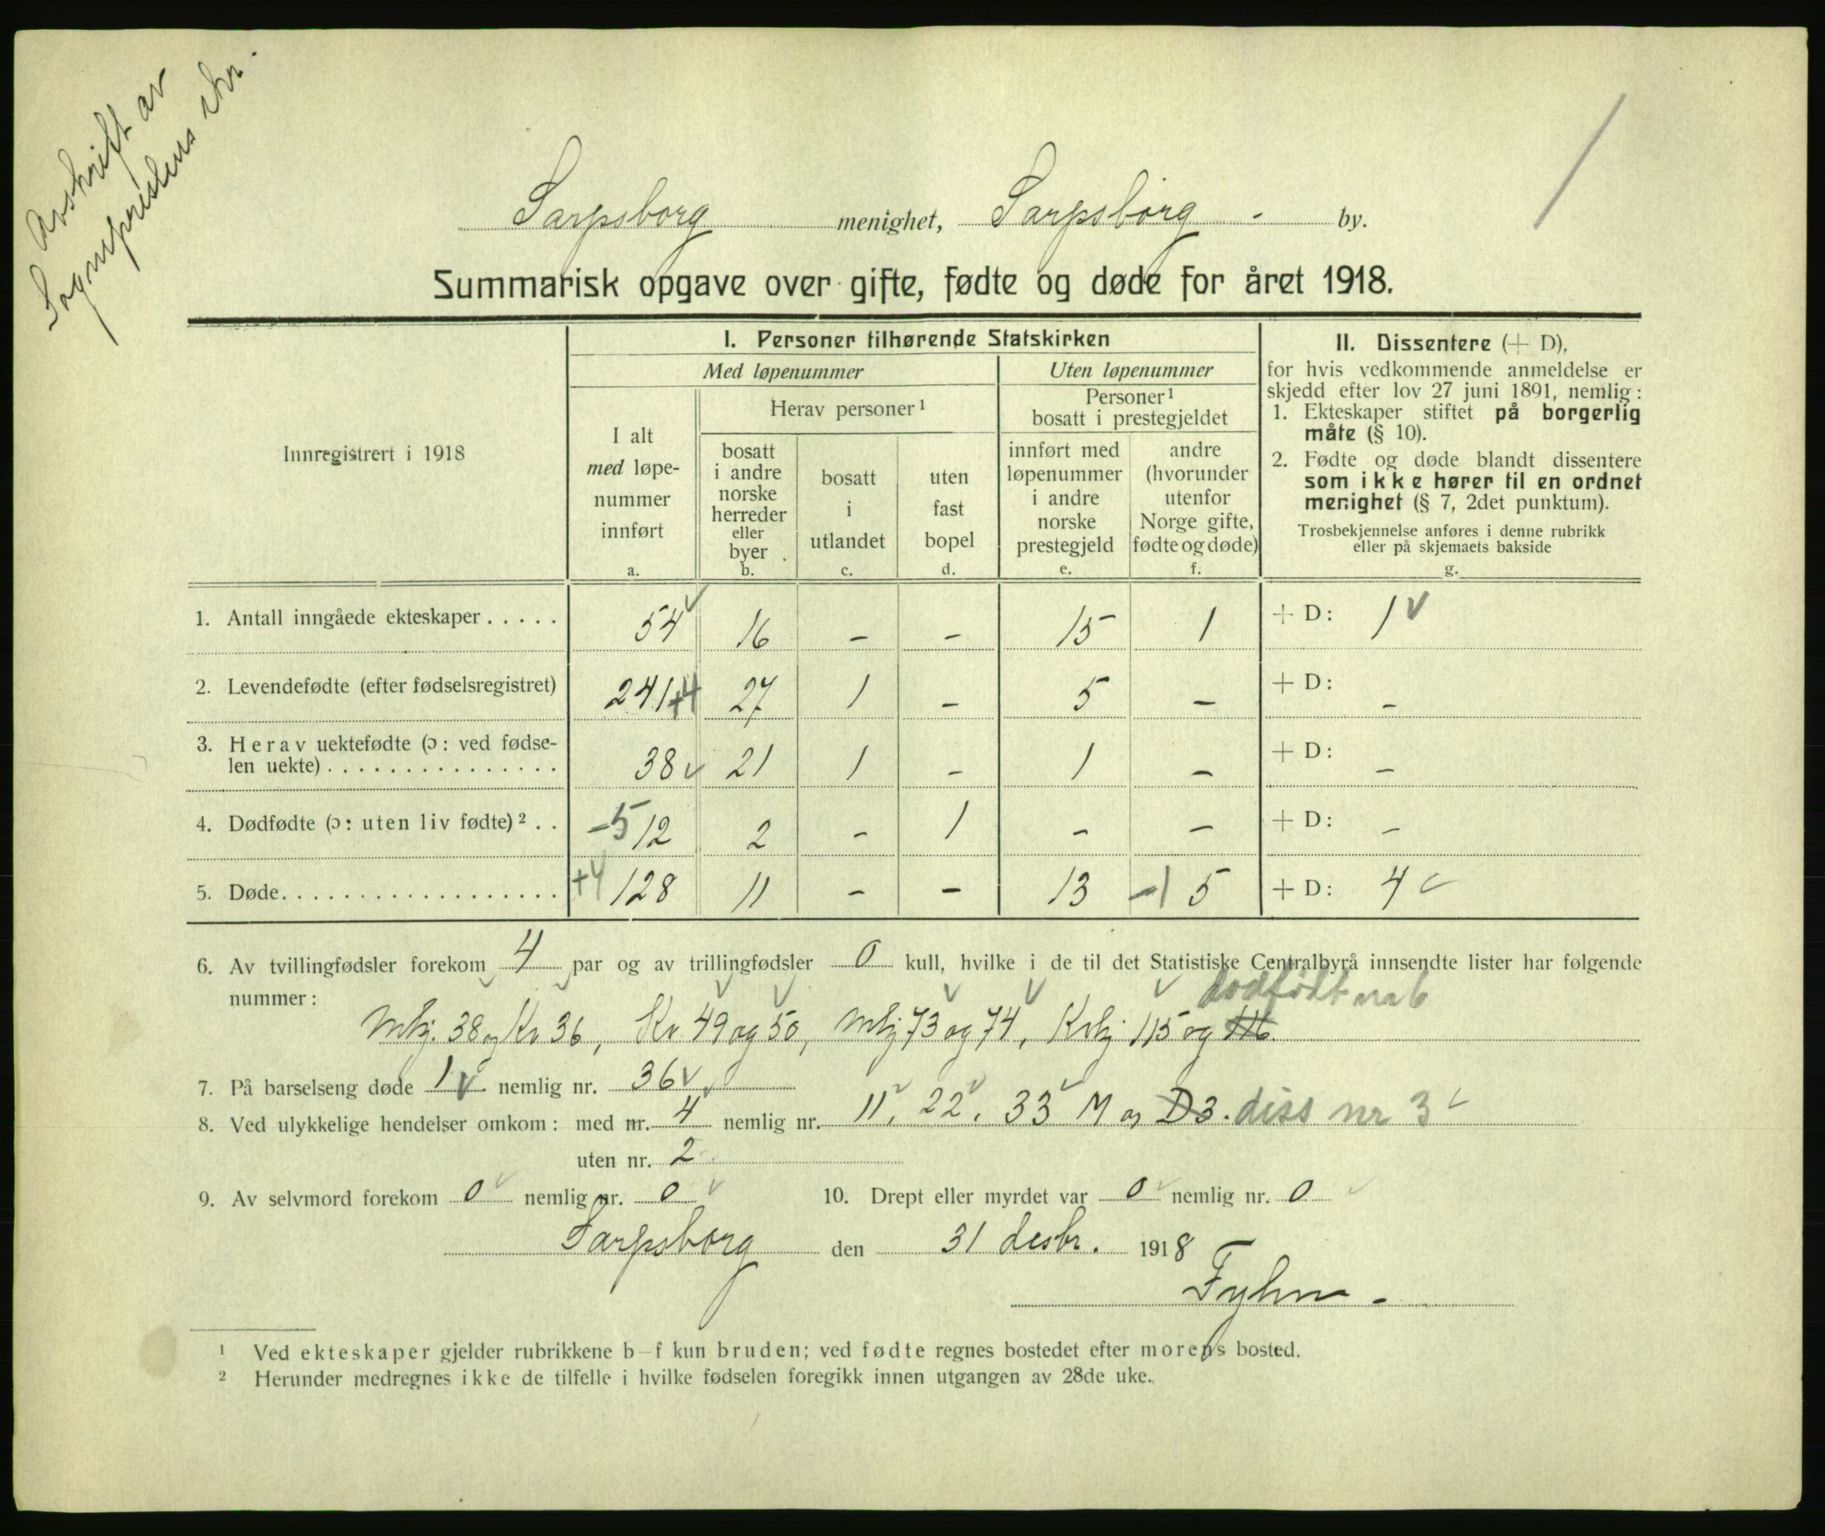 Avskrift av
Sogneprestens skr.
1
Sarpsborg menighet, Sarpsborg - by.
Summarisk opgave over gifte, fødte og døde for året 1918.
Innregistrert i 1918
I. Personer tilhørende Statskirken
Med løpenummer
Uten løpenummer
I alt
med løpe-
nummer
innført
a.
Herav personer ¹
bosatt
i andre
norske
herreder
eller
byer
b.
bosatt
i
utlandet
c.
uten
fast
bopel
d.
Personer ¹
bosatt i prestegjeldet
innført med
løpenummer
i andre
norske
prestegjeld
e.
andre
(hvorunder
utenfor
Norge gifte,
fødte og døde)
f.
II. Dissentere (+ D),
for hvis vedkommende anmeldelse er
skjedd efter lov 27 juni 1891, nemlig:
1. Ekteskaper stiftet på borgerlig
måte (§ 10).
2. Fødte og døde blandt dissentere
som ikke hører til en ordnet
menighet (§ 7, 2det punktum).
Trosbekjennelse anføres i denne rubrikk
eller på skjemaets bakside
g.
1. Antall inngåede ekteskaper . . . . . 54 16 – – 15 1 + D: 1
2. Levendefødte (efter fødselsregistret) 241 +4 27 1 – 5 – + D: –
3. Herav uektefødte (ɔ: ved fødse-
len uekte) . . . . . . . . . . . . . . . 38 21 1 – 1 – + D: –
4. Dødfødte (ɔ: uten liv fødte) ² . . –5 12 2 – 1 – – + D: –
5. Døde. . . . . . . . . . . . . . . . . . +4 128 11 – – 13 –1 5 + D: 4
6. Av tvillingfødsler forekom 4 par og av trillingfødsler 0 kull, hvilke i de til det Statistiske Centralbyrå innsendte lister har følgende
nummer: dødfødt nr 6
Mkj. 38 og Kv 36, Kv 49 og 50, Mkj 73 og 74, Kvkj 115 og 116.
7. På barselseng døde 1 nemlig nr. 36
8. Ved ulykkelige hendelser omkom: med nr. 4 nemlig nr. 11, 22, 33 M og D3. diss nr 3
uten nr. 2
9. Av selvmord forekom 0 nemlig nr. 0 10. Drept eller myrdet var 0 nemlig nr. 0
Sarpsborg den 31 desbr. 1918
Fyhn -
¹ Ved ekteskaper gjelder rubrikkene b–f kun bruden; ved fødte regnes bostedet efter morens bosted.
² Herunder medregnes ikke de tilfelle i hvilke fødselen foregikk innen utgangen av 28de uke.